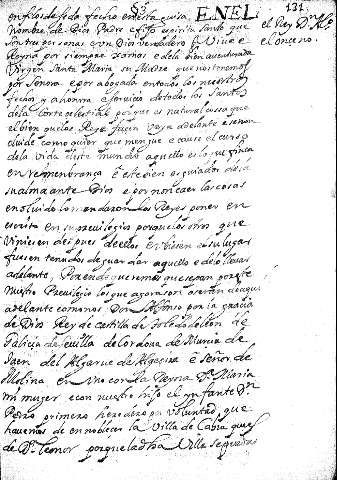 enfilos de seda fecho en esta guisa. EN EL
nombre de Dios Padre e fijo espiritu santo que
son tres personas e un Dios verdadero q̃ Viue e
Reyna por siempre jamas e dela bien auenturada
Virgen Santa Maria su Madre que nos tenemos
por señora e por abogada en todos los nuestros
fechos y a honrra e seruicio de todos los Santos
dela Corte celestial porque es natural cossa que
el bien que los Reyes facen vaya adelante e se non
oluide como quier que mengue e canse el curso
dela vida deste mundo aquello es lo que finca
en remembrança e este bien es guiador dela
su alma ante Dios e por non caer las cosas
en oluido lo mandaron los Reyes poner en
escrito en sus preuilegios porque los otros que
Viniesen despues de ellos en su lugar
fuesen tenudos de guardar aquello e delo lleuar
adelante, Por ende queremos que sepan por este
nuestro Preuilegio los que agora son o seran de aqui
adelante como nos Don Alfonso por la gracia
de Dios Rey de castilla de Toledo de Leon de
Galicia de seuilla de Cordoua de Murcia de
Jaen del Algarue de Algecira e señor de
Molina en vno con la Reyna Dª Maria
mi muger e con nuestro hijo el ynfante Dn
Pedro primero heredero por voluntad que
hauemos de ennoblecer la Villa de Cabra que es
de Dª Leonor porque la dicha Villa se
131
el Rey Dn Alº
el onceno.